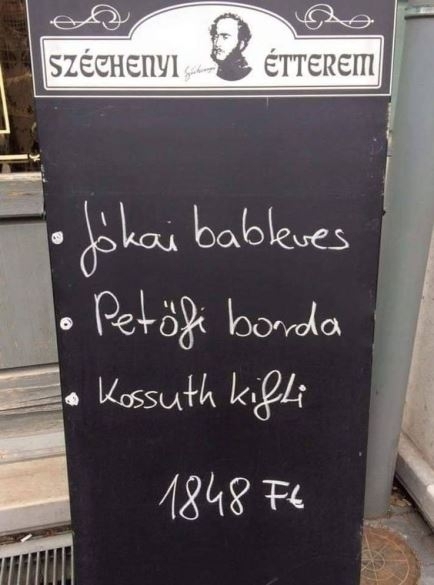 SZÉCHENYI ÉTTEREM
Jókai bableves
Petőfi borda
Kossuth kifli
1848 Ft